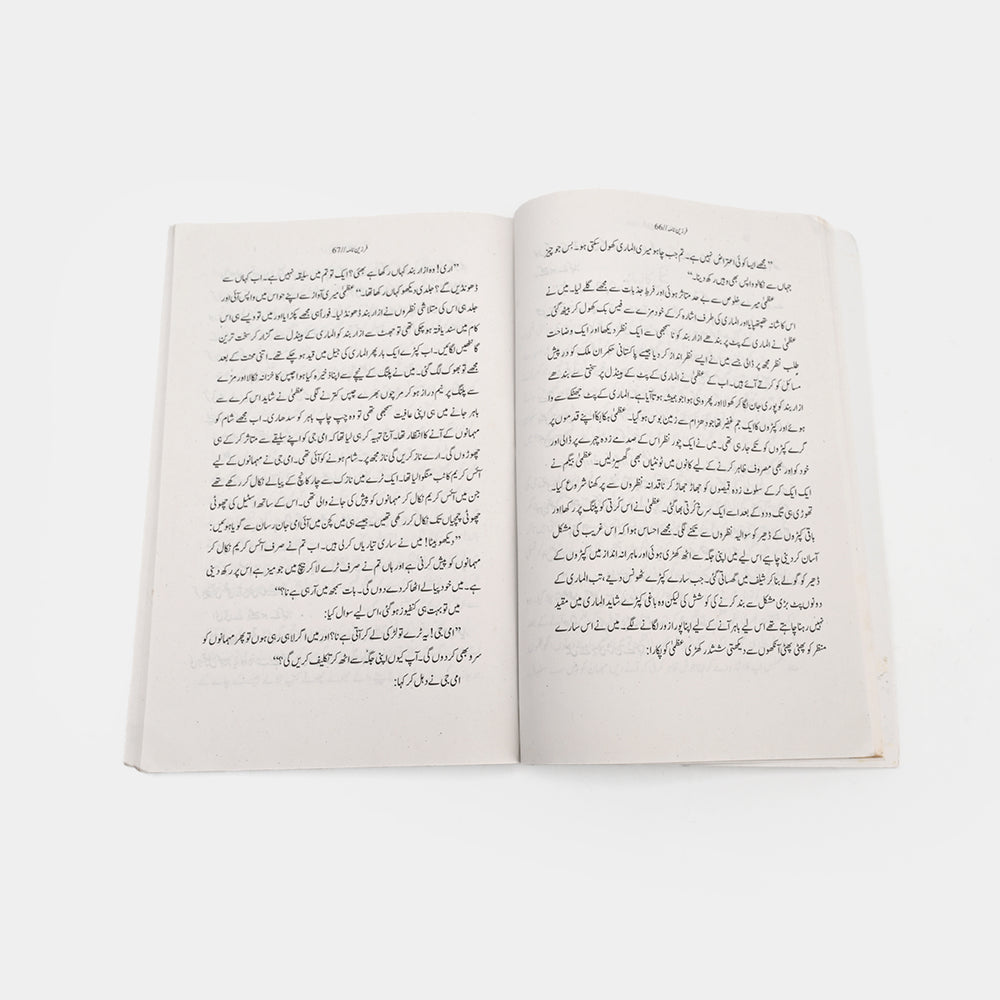 فرزین نامہ // 66
”مجھے ایسا کوئی اعتراض نہیں ہے۔ تم جب چاہو میری الماری کھول سکتی ہو۔ بس جو چیز
جہاں سے نکالو واپس وہیں رکھ دینا۔“
عظمیٰ میرے خلوص سے بے حد متاثر ہوئی اور فرطِ جذبات سے مجھے گلے لیا۔ میں نے
اس کا شانہ تھپتھپایا اور الماری کی طرف اشارہ کر کے خود مزے سے فیس بک کھول کر بیٹھ گئی۔
عظمیٰ نے الماری کے پٹ پر بندھے ازار بند کو ناسمجھی سے ایک نظر دیکھا اور ایک وضاحت
طلب نظر مجھ پر ڈالی جسے میں نے ایسے نظر انداز کر دیا جیسے پاکستانی حکمران ملک کو درپیش
مسائل کو کرتے آئے ہیں۔ اب کے عظمیٰ نے الماری کے پٹ کے ہینڈل پر سختی سے بندھے
ازار بند کو پوری جان لگا کر کھولا اور پھر وہی ہوا جو ہمیشہ ہوتا آیا ہے۔ الماری کے پٹ جھٹکے سے وا
ہوئے اور کپڑوں کا ایک جم غفیر تھا جو دھڑام سے زمین بوس ہو گیا۔ عظمیٰ ہکا بکا اپنے قدموں پر
گرے کپڑوں کو تکے جا رہی تھی۔ میں نے ایک چور نظر اس کے صدمے زدہ چہرے پر ڈالی اور
خود کو اور بھی مصروف ظاہر کرنے کے لیے کانوں میں ٹوٹنیاں بھی گھسیڑ لیں۔ عظمیٰ بیگم نے
ایک ایک کر کے سلوٹ زدہ قیمصوں کو جھاڑ جھاڑ کر ناقدانہ نظروں سے پرکھنا شروع کیا۔
تھوڑی ہی تگ و دو کے بعد اسے ایک سرخ کُرتی بھا گئی۔ عظمیٰ نے اس کُرتی کو پلنگ پر رکھا اور
باقی کپڑوں کے ڈھیر کو سوالیہ نظروں سے تکنے لگی۔ مجھے احساس ہوا کہ اس غریب کی مشکل
آسان کر دینی چاہیے اس لیے میں اپنی جگہ سے اٹھ کھڑی ہوئی اور ماہرانہ انداز میں کپڑوں کے
ڈھیر کو گولے بنا کر شیلف میں گھساتی گئی۔ جب سارے کپڑے ٹھونس دیئے، تب الماری کے
دونوں پٹ بڑی مشکل سے بند کرنے کی کوشش کی لیکن وہ باغی کپڑے شاید الماری میں مقید
نہیں رہنا چاہتے تھے اس لیے باہر آنے کے لیے اپنا پورا زور لگانے لگے۔ میں نے اس سارے
منظر کو پھٹی پھٹی آنکھوں سے دیکھتی ششدر کھڑی عظمیٰ کو پکارا:
فرزین نامہ // 67
”اری! وہ ازار بند کہاں رکھا ہے بھئی؟ ایک تو تم میں سلیقہ نہیں ہے۔ اب کہاں سے
ڈھونڈیں گے؟ جلدی دیکھو کہاں رکھا تھا۔“ عظمیٰ میری آواز سے اپنے حواس میں واپس آئی اور
جلد ہی اس کی متلاشی نظروں نے ازار بند ڈھونڈ لیا۔ فوراً ہی مجھے پکڑایا اور میں تو ویسے ہی اس
کام میں سند یافتہ ہو چکی تھی تو جھٹ سے ازار بند کو الماری کے ہینڈل سے گزار کر سخت ترین
گانٹھیں لگائیں۔ اب کپڑے ایک بار پھر الماری کی جیل میں قید ہو چکے تھے۔ اتنی محنت کے بعد
مجھے تو بھوک لگ گئی۔ میں نے پلنگ کے نیچے سے اپنا ذخیرہ کیا ہوا چپس کا خزانہ نکالا اور مزے
سے پلنگ پر نیم دراز ہو کر مرچوں بھرے چپس کترنے لگی۔ عظمیٰ نے شاید اس کمرے سے
باہر جانے میں ہی اپنی عافیت سمجھی تھی تو وہ چپ چاپ باہر کو سدھاری۔ اب مجھے شام کو
مہمانوں کے آنے کا انتظار تھا۔ آج تہیہ کر ہی لیا تھا کہ امی جی کو اپنے سلیقے سے متاثر کر کے ہی
چھوڑوں گی۔ ارے ناز کریں گی ناز مجھ پر۔ شام ہونے کو آئی تھی۔ امی جی نے مہمانوں کے لیے
آئس کریم کا ٹب منگوا لیا تھا۔ ایک ٹرے میں نازک سے چار کانچ کے پیالے نکال کر رکھے تھے
جن میں آئس کریم نکال کر مہمانوں کو پیش کی جانے والی تھی۔ اس کے ساتھ اسٹیل کی چھوٹی
چھوٹی چمچیاں تک نکال کر رکھی تھیں۔ جیسے ہی میں کچن میں آئی امی جان رسان سے گویا ہوئیں:
”دیکھو بیٹا! میں نے ساری تیاریاں کر لی ہیں۔ اب تم نے صرف آئس کریم نکال کر
مہمانوں کو پیش کرنی ہے اور ہاں تم نے صرف ٹرے لا کر بیچ میں جو میز ہے اس پر رکھ دینی
ہے۔ میں خود پیالے اٹھا کر دے دوں گی۔ بات سمجھ میں آ رہی ہے نا؟“
میں تو بہت ہی کنفیوز ہو گئی، اس لیے سوال کیا:
”امی جی! یہ ٹرے تو لڑکی لے کر آتی ہے نا؟ اور میں اگر لا ہی رہی ہوں تو پھر مہمانوں کو
سرو بھی کر دوں گی۔ آپ کیوں اپنی جگہ سے اٹھ کر تکلیف کریں گی؟“
امی جی نے دہل کر کہا: